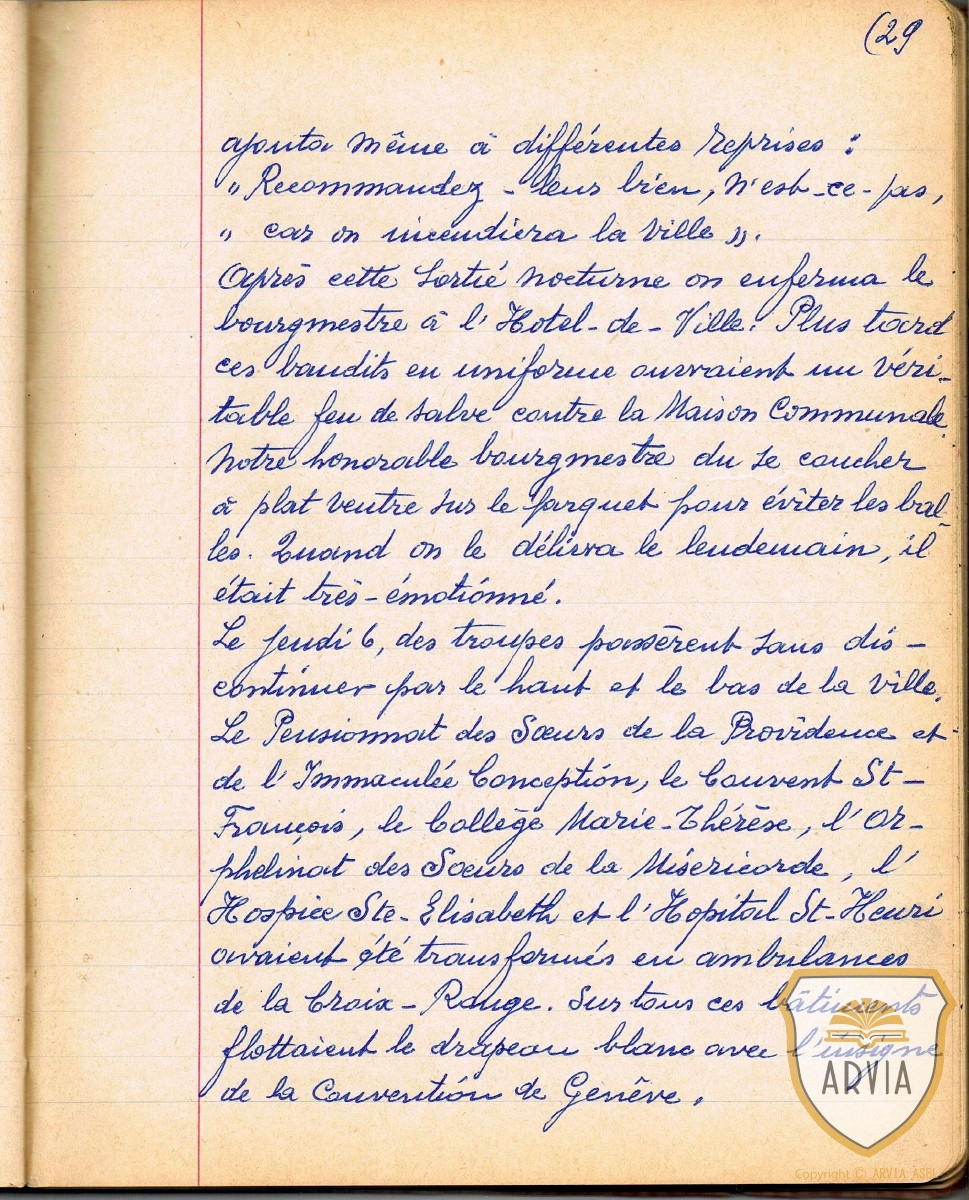 (29
ajouta même à différentes reprises :
" Recommandez - leur bien, n'est-ce-pas,
" car on incendiera la ville ».
Après cette sortie nocturne on enferma le
bourgmestre à l'Hotel-de-Ville. Plus tard
ces bandits en uniforme ouvraient un véri-
table feu de salve contre la Maison Communale.
Notre honorable bourgmestre du se coucher
à plat ventre sur le parquet pour éviter les bal-
les. Quand on le délivra le lendemain, il
était très-émotionné.
Le jeudi 6, des troupes passèrent sans dis-
continuer par le haut et le bas de la ville.
Le Pensionnat des Sœurs de la Providence et
de l'Immaculée Conception, le Couvent St-
François, le Collège Marie-Thérèse, l'Or-
phelinat des Sœurs de la Miséricorde, l'
Hospice Ste-Elisabeth et l'Hopital St-Henri
avaient été transformés en ambulances
de la Croix-Rouge. Sur tous ces bâtiments
flottaient le drapeau blanc avec l'insigne
de la Convention de Genève.
ARVIA
Copyright (C) ARVIA ASBL